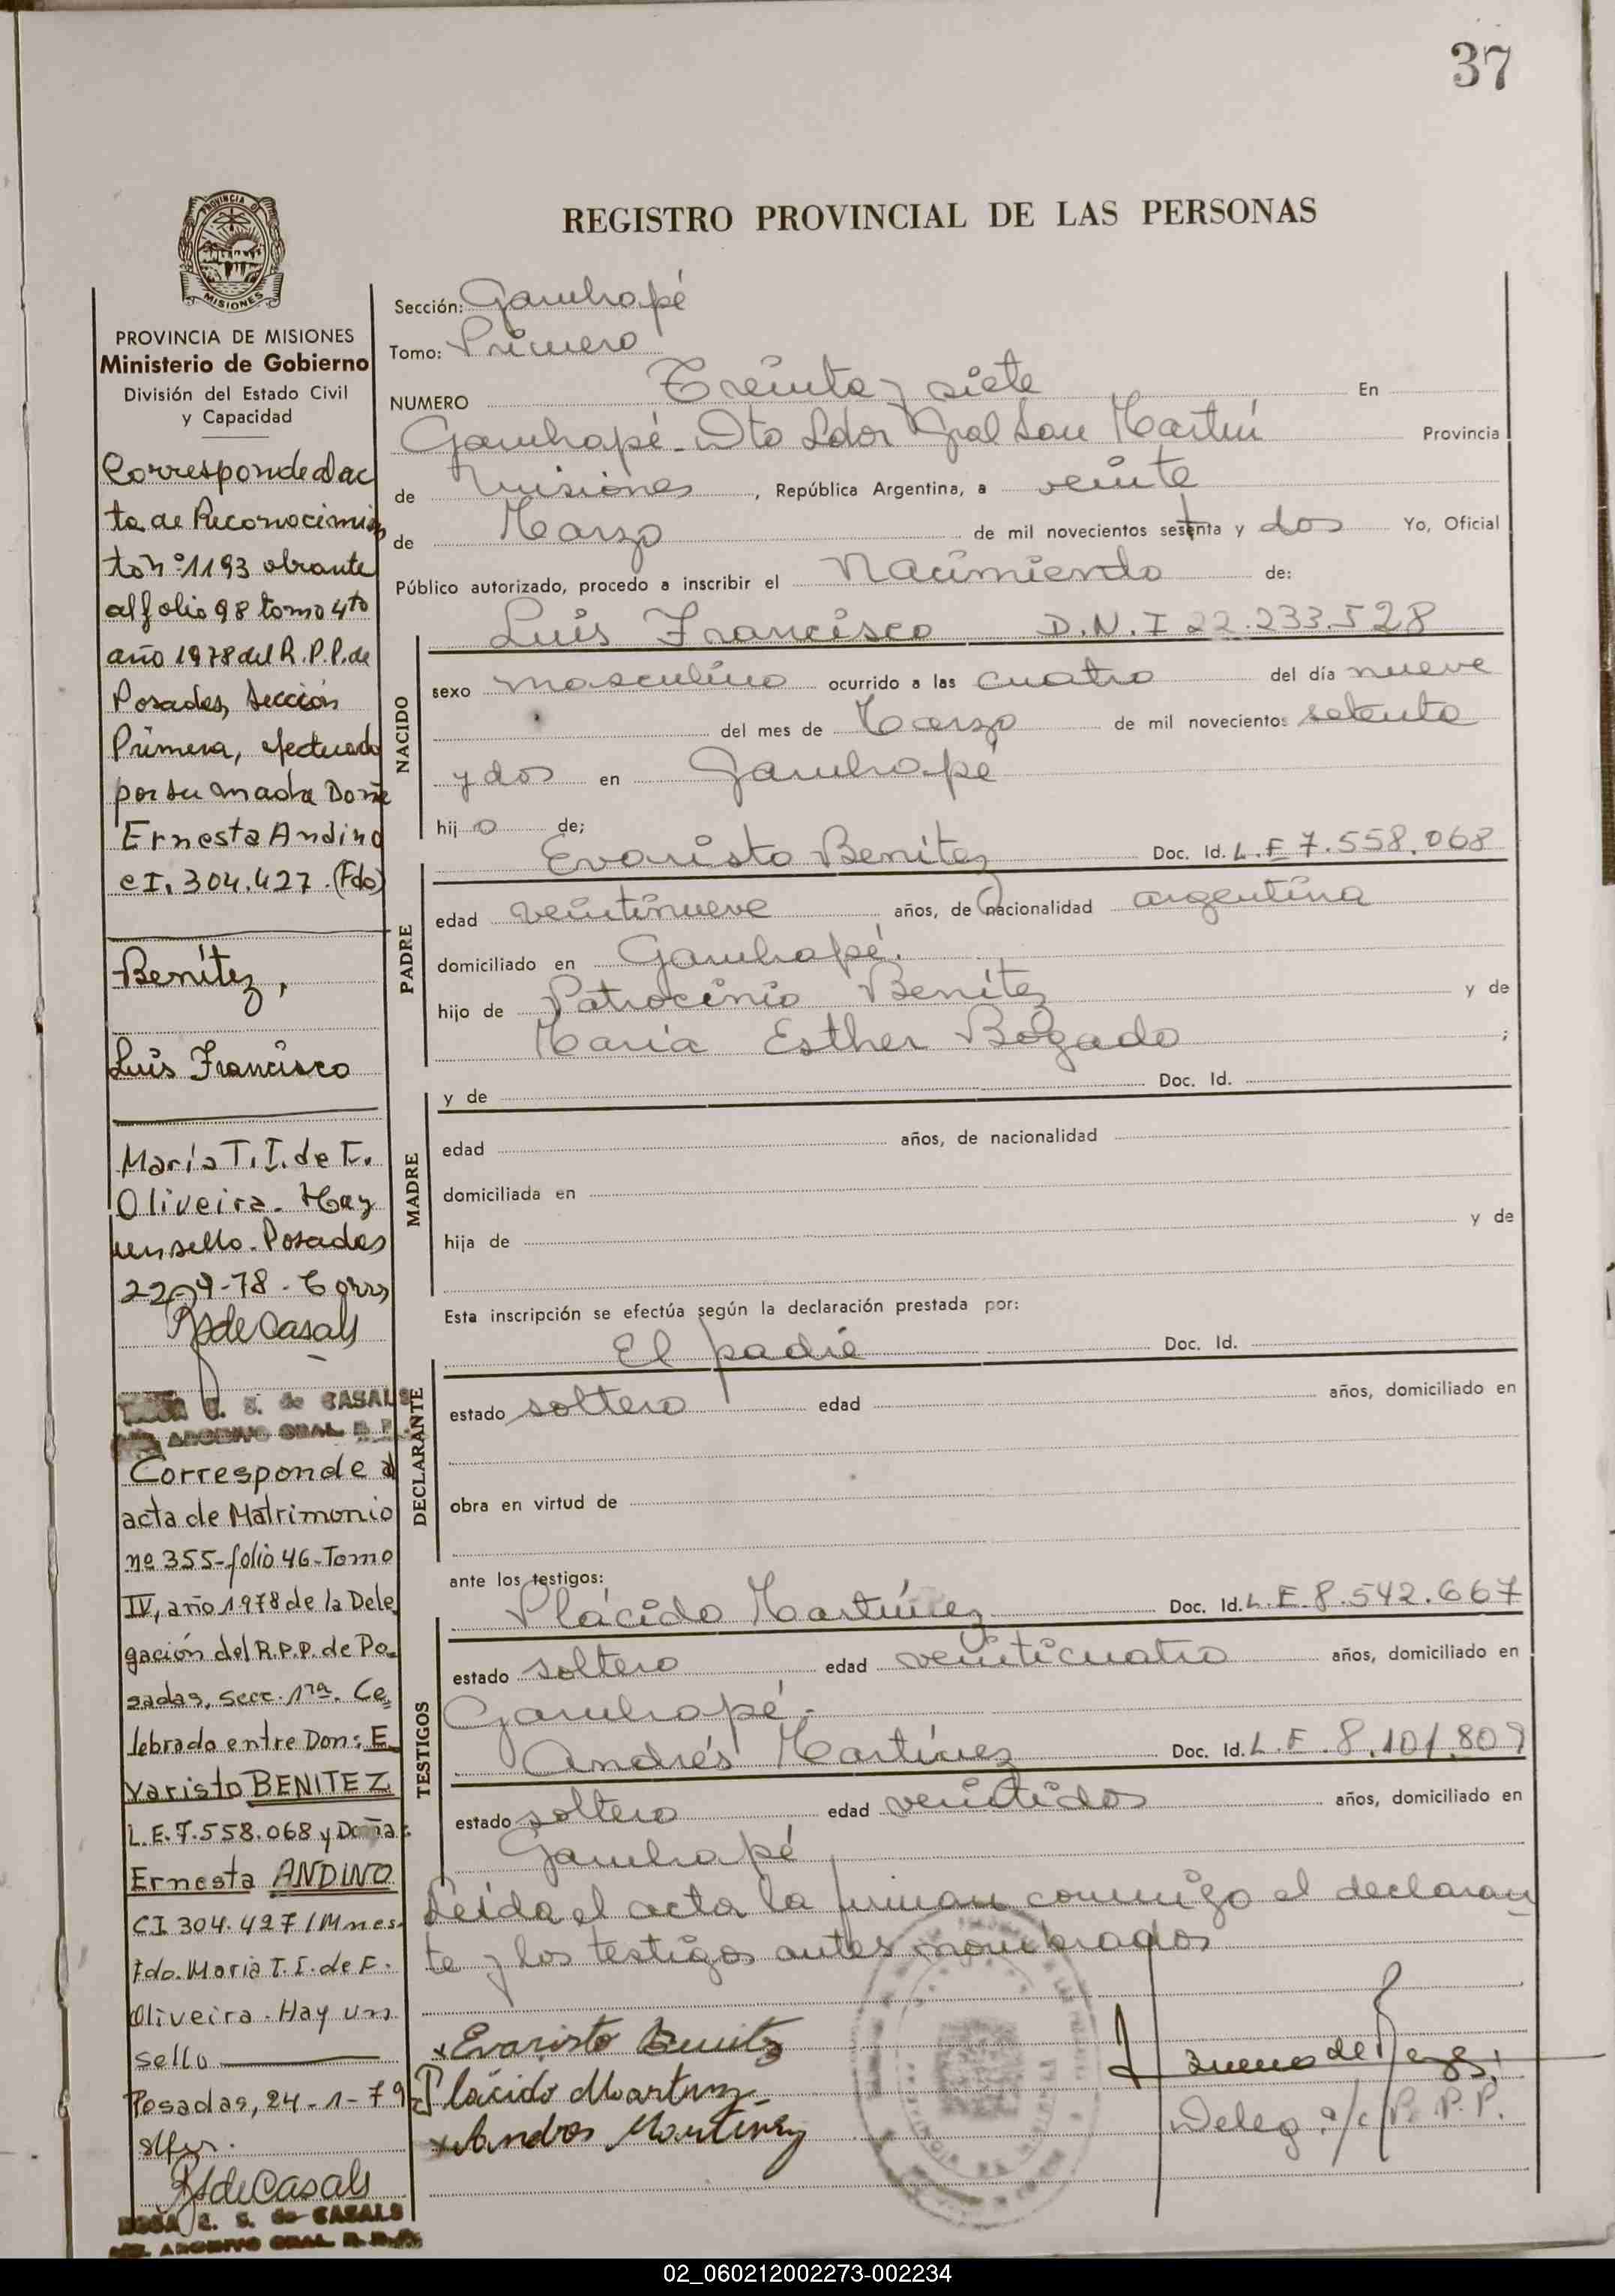 37
PROVINCIA DE
MISIONES
REGISTRO PROVINCIAL DE LAS PERSONAS
PROVINCIA DE MISIONES
Ministerio de Gobierno
División del Estado Civil
y Capacidad
Corresponde al ac
ta de Reconocimien
to nº 1193 obrante
al folio 98 tomo 4to
año 1978 del R.P.P. de
Posadas, Sección
Primera, efectuado
por su madre Doña
Ernesta Andino
CI. 304.427. (Fdo)
Benítez,
Luis Francisco
María T. I. de F.
Oliveira. Hay
un sello. Posadas
22-9-78.
RSdeCasals
E. S. de CASALS
ARCHIVO GRAL. R. P.
Corresponde al
acta de Matrimonio
nº 355-folio 46-Tomo
IV, año 1978 de la Dele
gación del R.P.P. de Po
sadas, secc. 1ra. Ce
lebrado entre Don: E
varisto BENITEZ
L.E. 7.558.068 y Doña:
Ernesta ANDINO
CI 304.427/Mnes.
Fdo. Maria T. I. de F.
Oliveira. Hay un
sello
Posadas, 24-1-79
RSdeCasals
ROSA E. S. de CASALS
ARCHIVO GRAL. R. P. P.
Sección: Garuhapé
Tomo: Primero
NUMERO Treinta y siete En
Garuhapé - Dto Ldor Gral San Martín Provincia
de Misiones, República Argentina, a veinte
de Marzo de mil novecientos setenta y dos Yo, Oficial
Público autorizado, procedo a inscribir el Nacimiento de:
Luis Francisco D.N.I 22.233.528
NACIDO
sexo masculino ocurrido a las cuatro del día nueve
del mes de Marzo de mil novecientos setenta
y dos en Garuhapé
hijo de;
Evaristo Benítez Doc. Id. L.E 7.558.068
PADRE
edad veintinueve años, de nacionalidad argentina
domiciliado en Garuhapé.
hijo de Patrocinio Benítez y de
María Esther Bogado ;
y de Doc. Id.
MADRE
edad años, de nacionalidad
domiciliada en
hija de y de
Esta inscripción se efectúa según la declaración prestada por:
El padre Doc. Id.
DECLARANTE
estado soltero edad años, domiciliado en
obra en virtud de
ante los testigos:
Plácido Martínez Doc. Id. L.E. 8.542.667
TESTIGOS
estado soltero edad veinticuatro años, domiciliado en
Garuhapé.
Andrés Martínez Doc. Id. L.E. 8.101.809
estado soltero edad veintidos años, domiciliado en
Garuhapé
Leída el acta la firman conmigo el declaran
te y los testigos antes nombrados
Evaristo Benitez
Plácido Martinez
Andres Martínez
Deleg. a/c R.P.P.
02_060212002273-002234